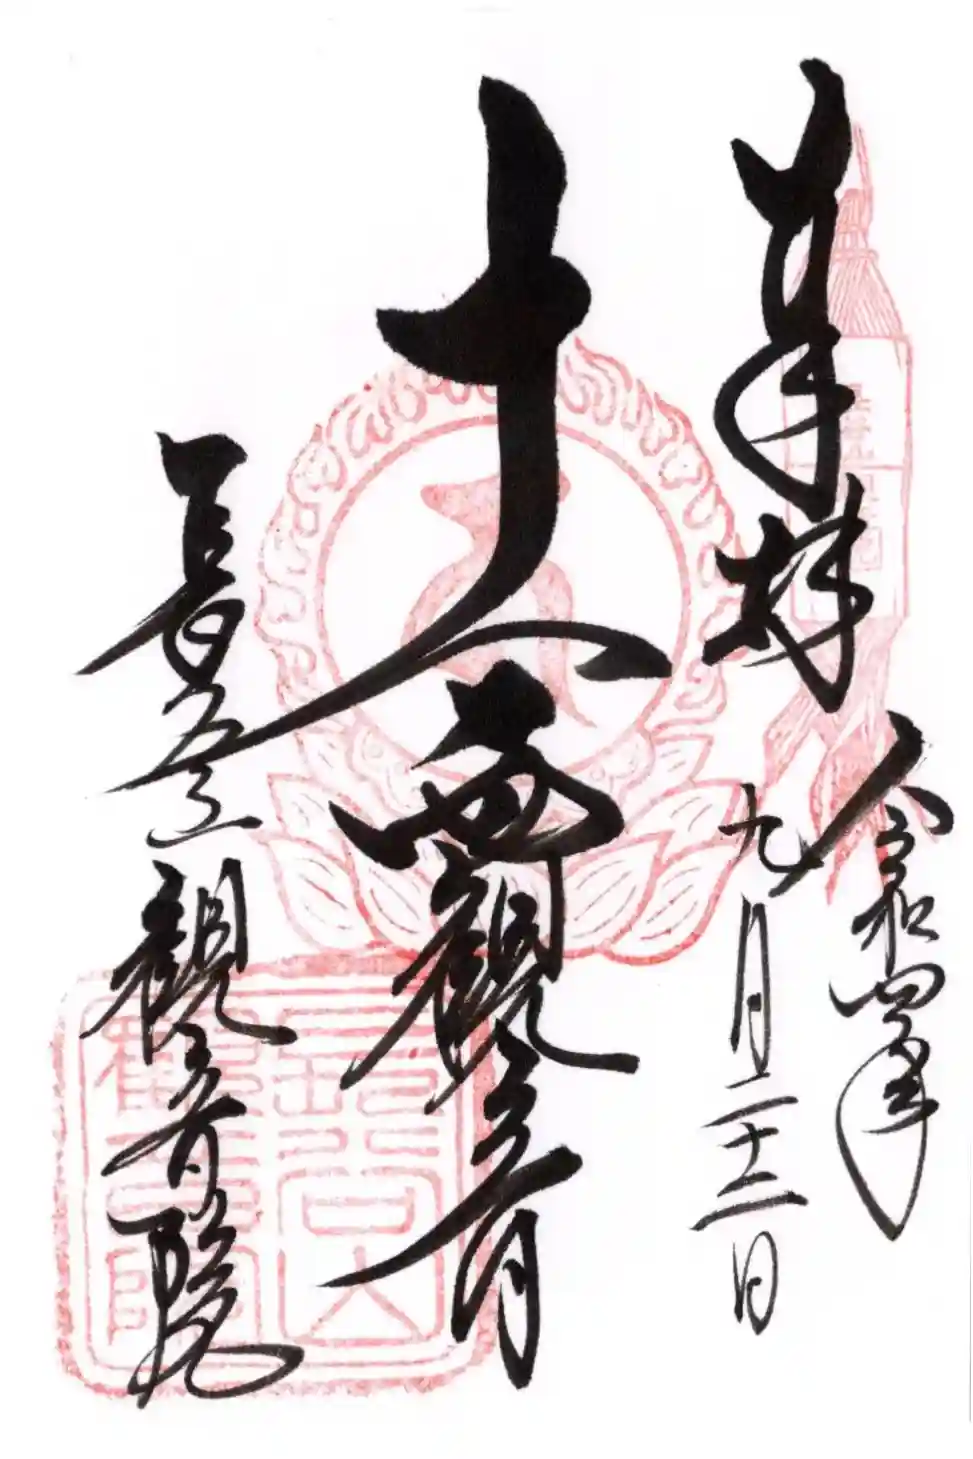 奉拝
令和四年
九月二十三日
十一面観音
観音院